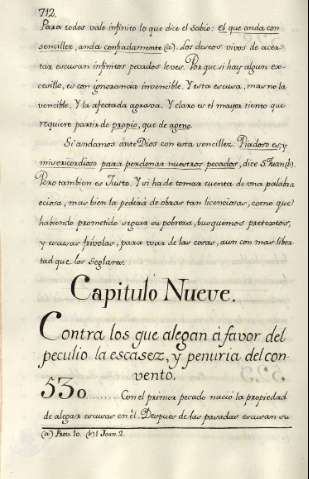 712.
Para todos vale infinito lo que dice el Sabio: El que anda con
sencillez, anda confiadamente (a). Los deseos vivos de acer-
tar escusan infinitos pecados leves. Por que si hay algun ex-
cesillo, es con ignorancia invencible. Y esta escusa, mas no la
vencible. Y la afectada agrava. Y claro es el mayor tiento que
requiere partir de propio, que de ageno.
Si andamos ante Dios con esta sencillez. Piadoso es, y
misericordioso para perdonar nuestros pecados, dice S. Juan (b).
Pero tambien es Justo. Y si ha de tomar cuenta de una palabra
ociosa, mas bien la pedirá de obras tan licenciosas, como que
habiendo prometido seguir su pobreza, busquemos pretextos,
y escusas frivolas, para usar de las cosas, aun con mas liber-
tad que los Seglares.
Capitulo Nueve.
Contra los que alegan á favor del
peculio la escasez, y penuria del con-
vento.
530 ........ Con el primer pecado nació la propiedad
de alegar escusas en él. Despues de las pasadas escusan su
(a) Prov. 10. (b) 1 Joan. 2.